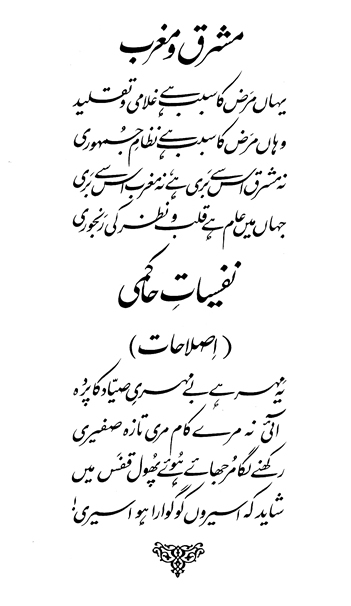 مشرق و مغرب
یہاں مرض کا سبب ہے غلامی و تقلید
وہاں مرض کا سبب ہے نظامِ جمہوری
نہ مشرق اس سے بری ہے، نہ مغرب اس سے بری
جہاں میں عام ہے قلب و نظر کی رنجوری
نفسیاتِ حاکمی
(اصلاحات)
یہ مہر ہے بے مہریِ صیّاد کا پردہ
آئی نہ مرے کام مری تازہ صفیری
رکھنے لگا مرجھائے ہوئے پھول قفس میں
شاید کہ اسیروں کو گوارا ہو اسیری!